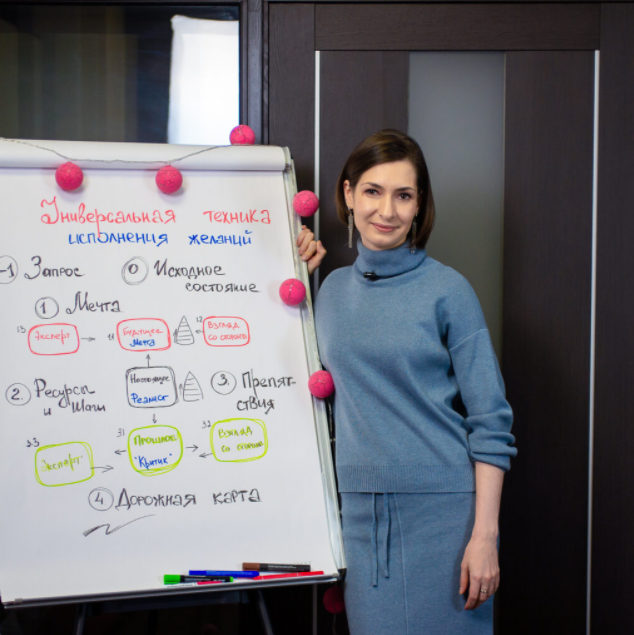 Универсальная техника
исполнения желаний
-1 Запрос
0 Исходное
состояние
1 Мечта
13
Эксперт
11
Будущее
Мечта
12
Взгляд
со стороны
Настоящее
Реалист
2. Ресурсы
и Шаги
3. Препят-
ствия
33
Эксперт
31
Прошлое
"Критик"
32
Взгляд
со стороны
4 Дорожная карта